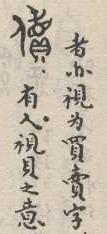 者亦視为買賣字
儥 有人視貝之意